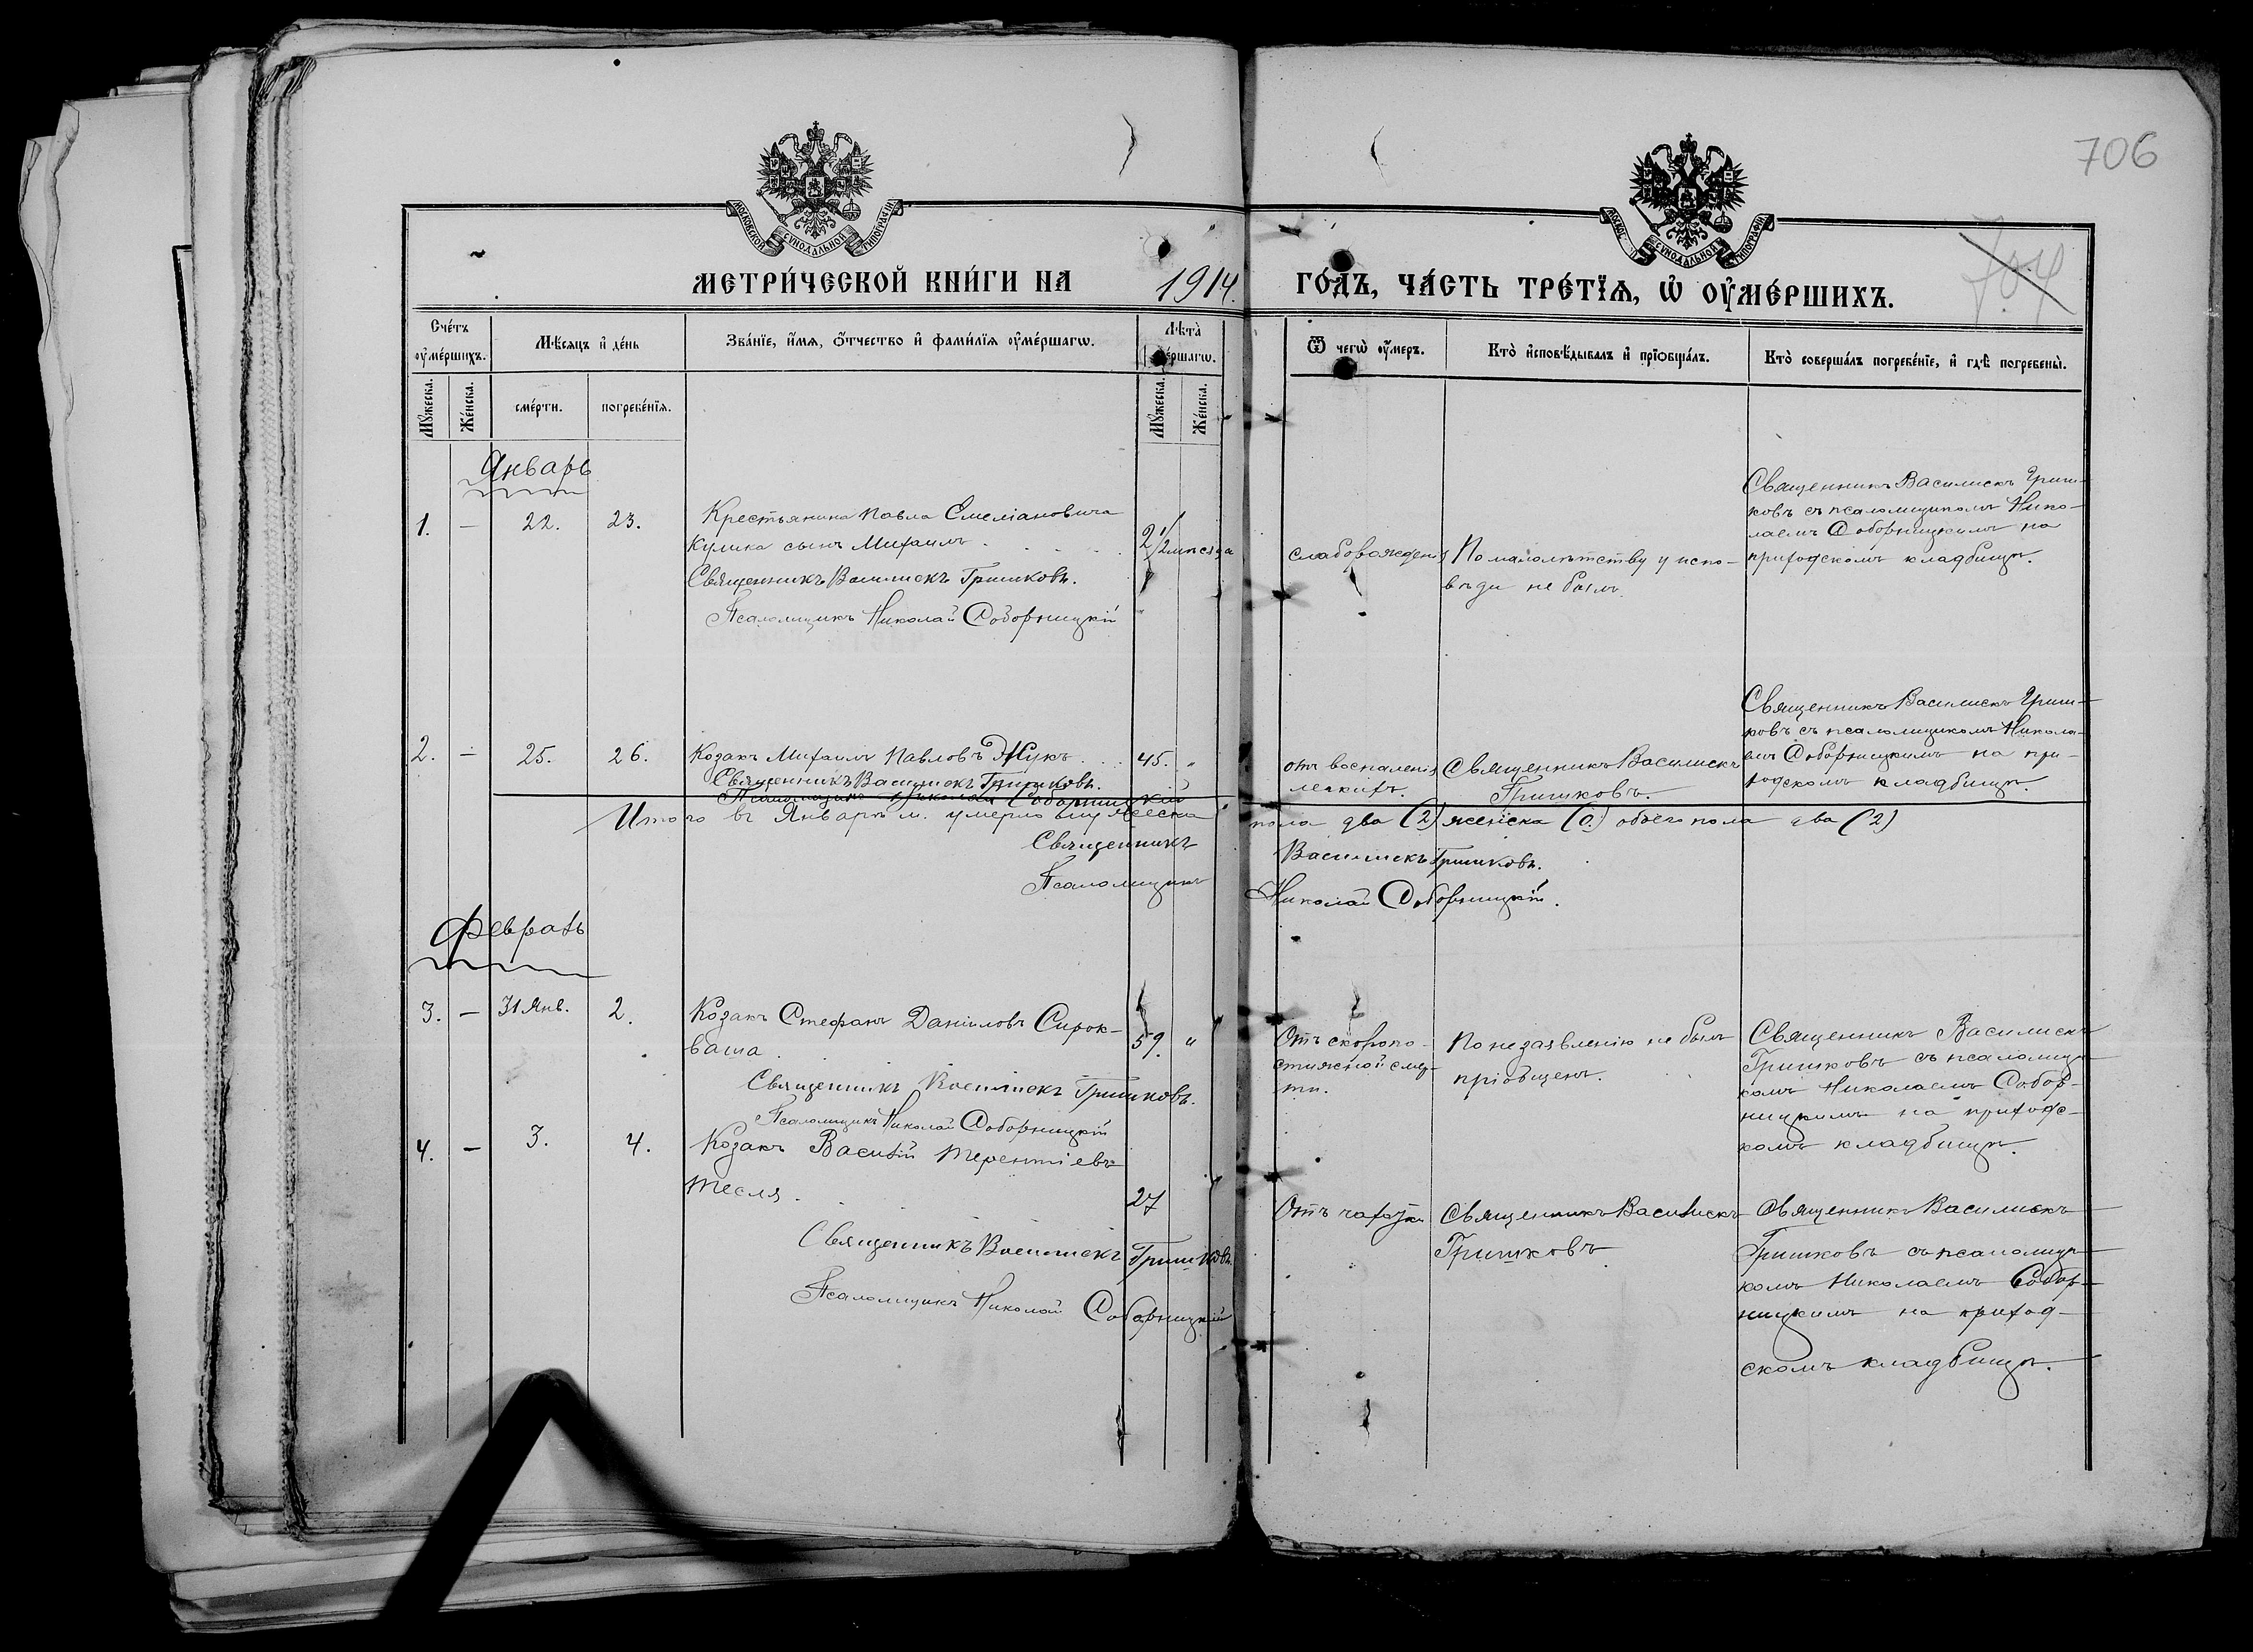 706
704
МОСКОВСКОЙ СУНОДАЛЬНОЙ ТИПОГРАФІИ
МОСКОВ СУНОДАЛЬНОЙ ТИПОГРАФІИ
МЕТРИ́ЧЕСКОЙ КНИ́ГИ НА 1914. ГО́ДЪ, ЧА́СТЬ ТРЕ́ТЇѦ, Ѡ҆ ОУ҆МЕ́РШИХЪ.
Сче́тъ оу҆ме́ршихъ.
Мѣ́сяцъ и҆ де́нь
Зва́нїе, и҆́мѧ, ѻ҆́тчество и҆ фами́лїѧ оу҆ме́ршагѡ.
Лѣ́та оуме́ршагѡ.
Ѿ чегѡ̀ оу҆́меръ.
Кто̀ и҆сповѣ́дывалъ и҆ прїѡбща́лъ.
Кто̀ соверша́лъ погребе́нїе, и҆ гдѣ̀ погребены̀.
Мꙋ́жеска.
Же́нска.
сме́рти.
погребе́нїѧ.
Мꙋ́жеска.
Же́нска.
Январь
1. — 22. 23.
Крестьянина Павла Емеліановича
Кулика сынъ Михаилъ . . . .
Священникъ Василискъ Гришковъ.
Псаломщикъ Николай Соборницкій
2 1/2 мѣсяца
слаборожденія
По малолѣтству у испо-
вѣди не былъ.
Священникъ Василискъ Гриш-
ковъ съ псаломщикомъ Нико-
лаемъ Соборницкимъ на
приходскомъ кладбищѣ.
2. — 25. 26.
Козакъ Михаилъ Павловъ Жукъ . . .
Священникъ Василискъ Гришковъ.
Псаломщикъ Николай Соборницкій
45. "
отъ воспаленія
легкихъ.
Священникъ Василискъ
Гришковъ.
Священникъ Василискъ Гриш-
ковъ съ псаломщикомъ Никола-
емъ Соборницкимъ на при-
ходскомъ кладбищѣ.
Итого въ Январѣ м. умерло мужеска пола два (2) женска (0) обоего пола два (2)
Священникъ Василискъ Гришковъ.
Псаломщикъ Николай Соборницкій.
Февраль
3. — 31 Янв. 2.
Козакъ Стефанъ Даніиловъ Сирок-
ваша .
Священникъ Василискъ Гришковъ.
Псаломщикъ Николай Соборницкій
59. "
Отъ скоропо-
стижной смер-
ти.
По незаявленію не былъ
пріобщенъ.
Священникъ Василискъ
Гришковъ съ псаломщи-
комъ Николаемъ Собор-
ницкимъ на приходс-
комъ кладбищѣ.
4. — 3. 4.
Козакъ Василій Терентіевъ
Тесля .
Священникъ Василискъ Гришковъ.
Псаломщикъ Николай Соборницкій
27
Отъ чахотки
Священникъ Василискъ
Гришковъ
Священникъ Василискъ
Гришковъ съ псаломщи-
комъ Николаемъ Собор-
ницкимъ на приход-
скомъ кладбищѣ.